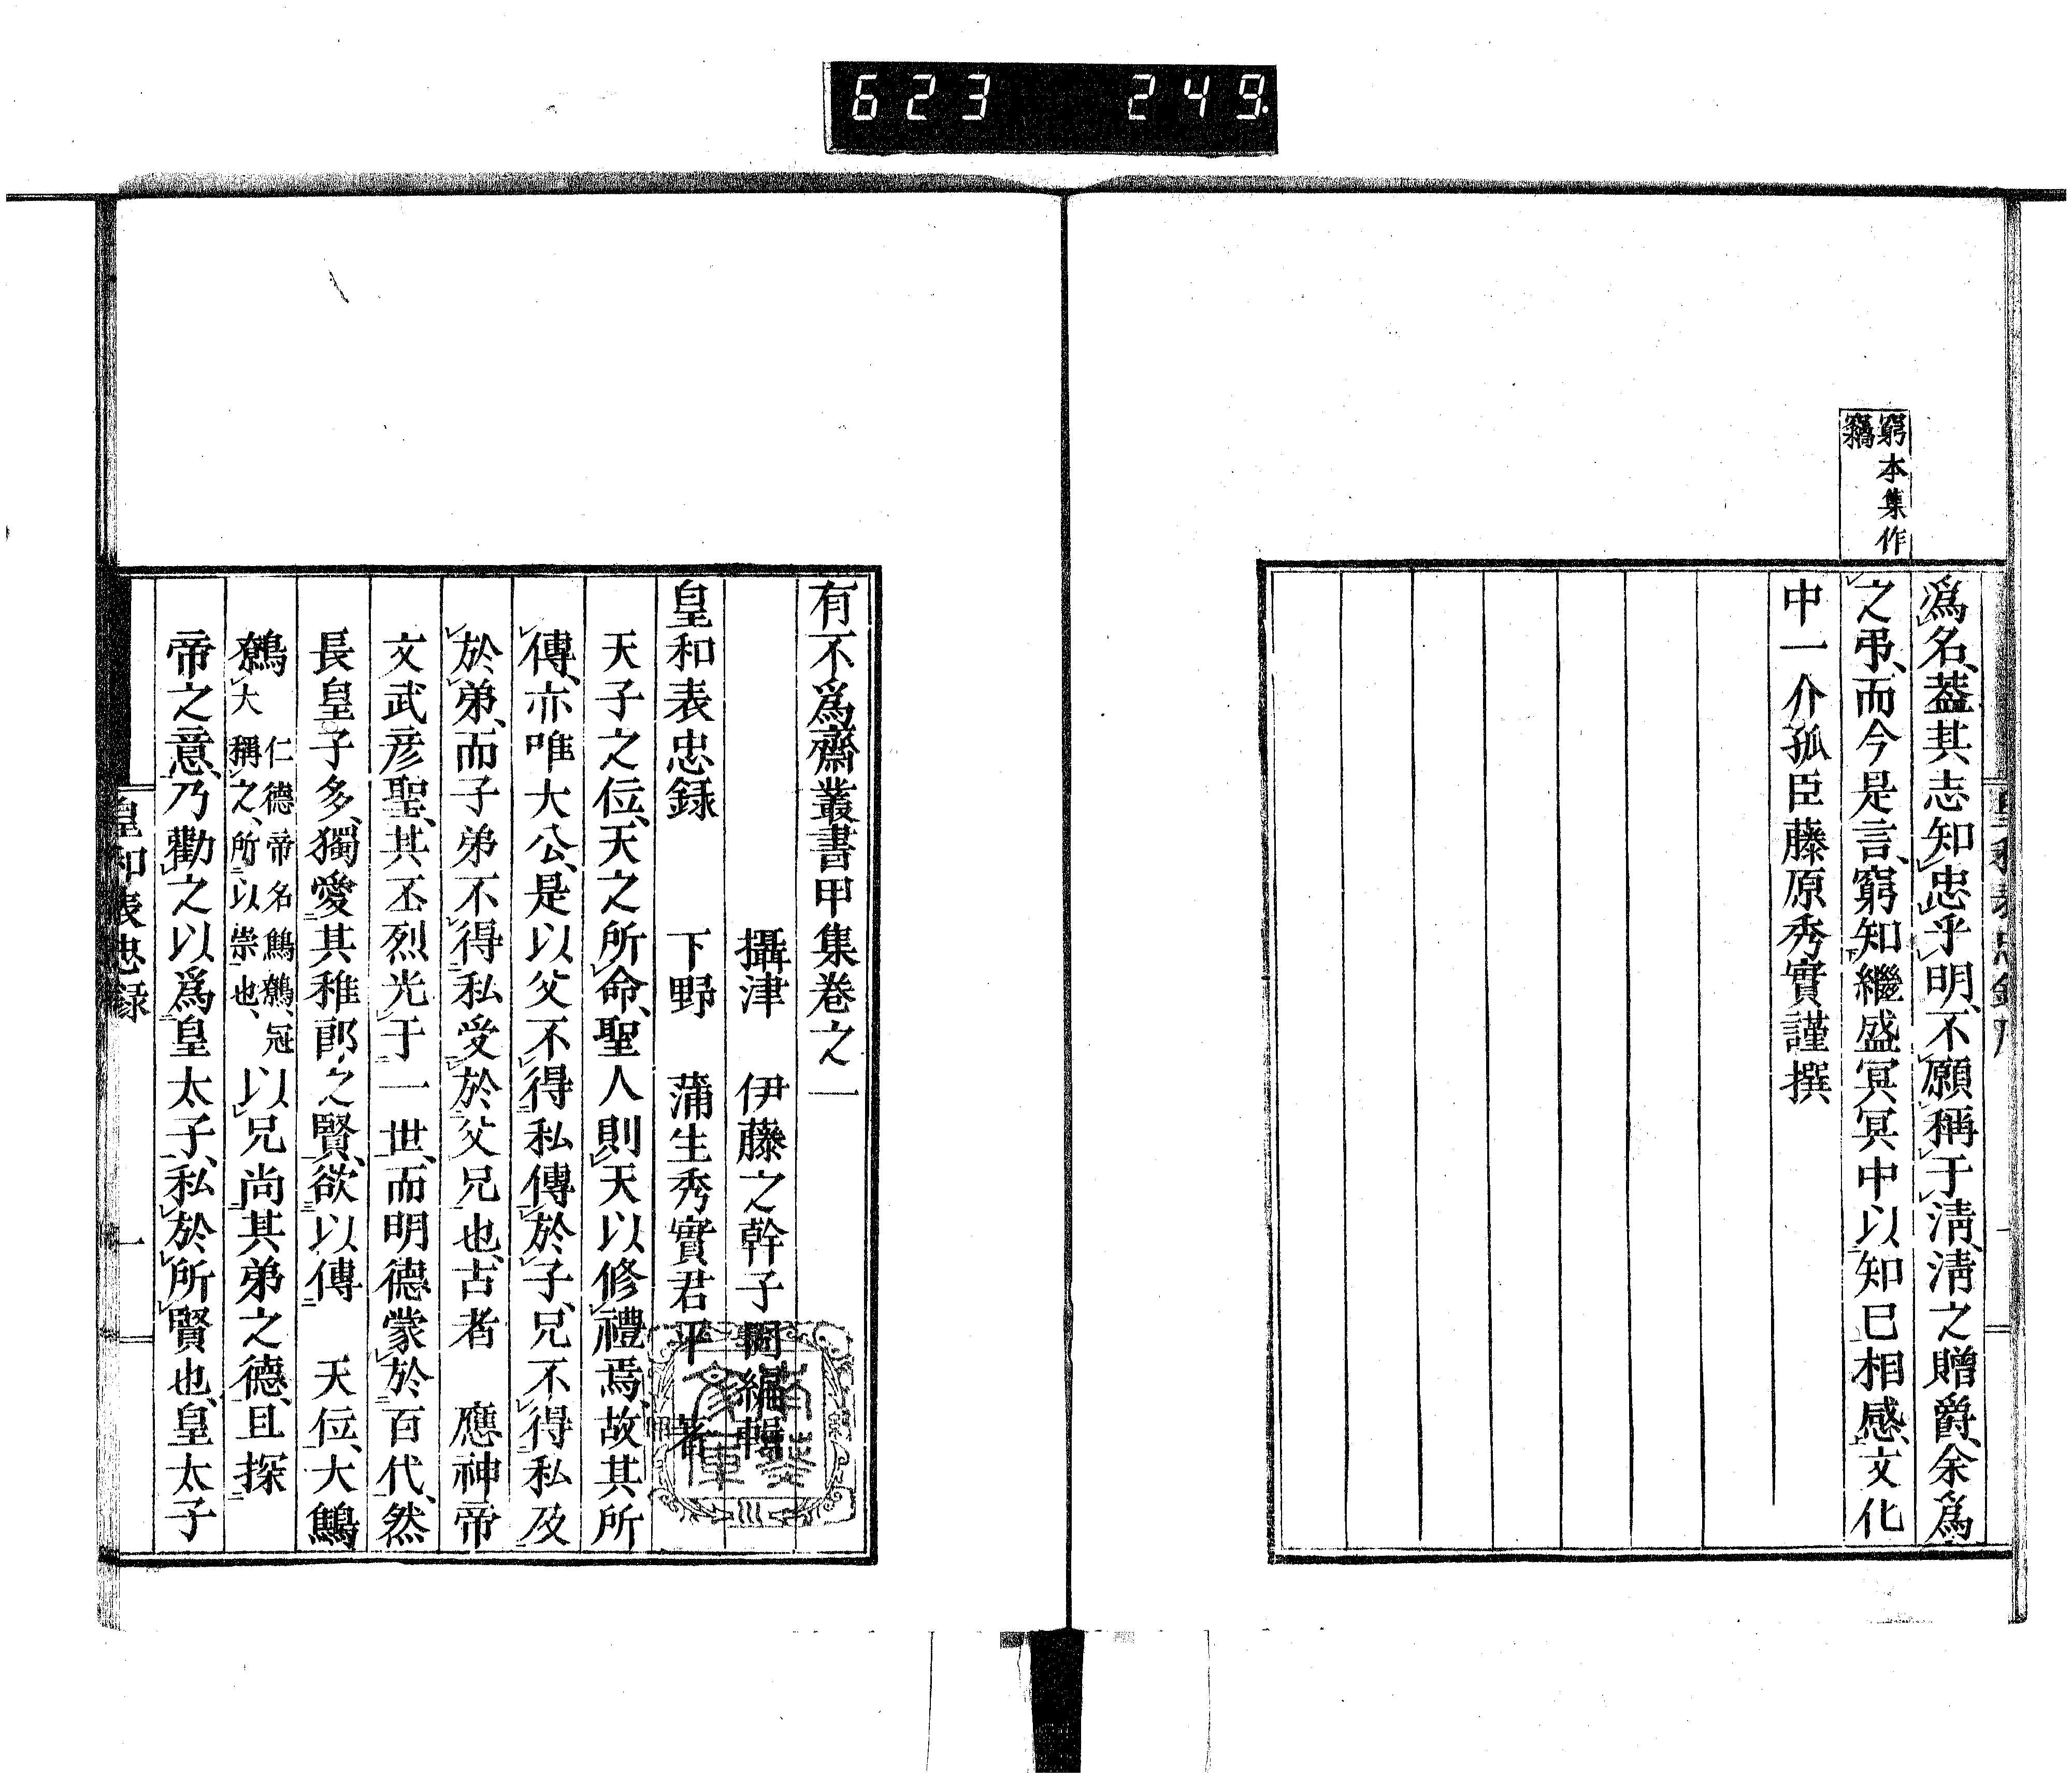 623 249.
窮本集作
竊
爲名、葢其志知忠乎明、不願稱于淸、淸之贈爵、余爲
之弔、而今是言、窮知繼盛冥冥中以知已相感、文化
中一介孤臣藤原秀實謹撰
有不爲齋叢書甲集卷之一
攝津 伊藤之幹子固編輯
皇和表忠録 下野 蒲生秀實君平 著
天子之位、天之所命、聖人則天以修禮焉、故其所
傳、亦唯大公、是以父不得私傳於子、兄不得私及
於弟、而子弟不得私受於父兄也、古者 應神帝
文武彦聖、其丕烈光于一世、而明德蒙於百代、然
長皇子多、獨愛其稚郎之賢、欲以傳 天位、大鷦
鷯大仁德帝名鷦鷯、冠稱之、所以崇也、以兄尚其弟之德、且探
帝之意、乃勸之以爲皇太子、私於所賢也、皇太子
皇和表忠録 一